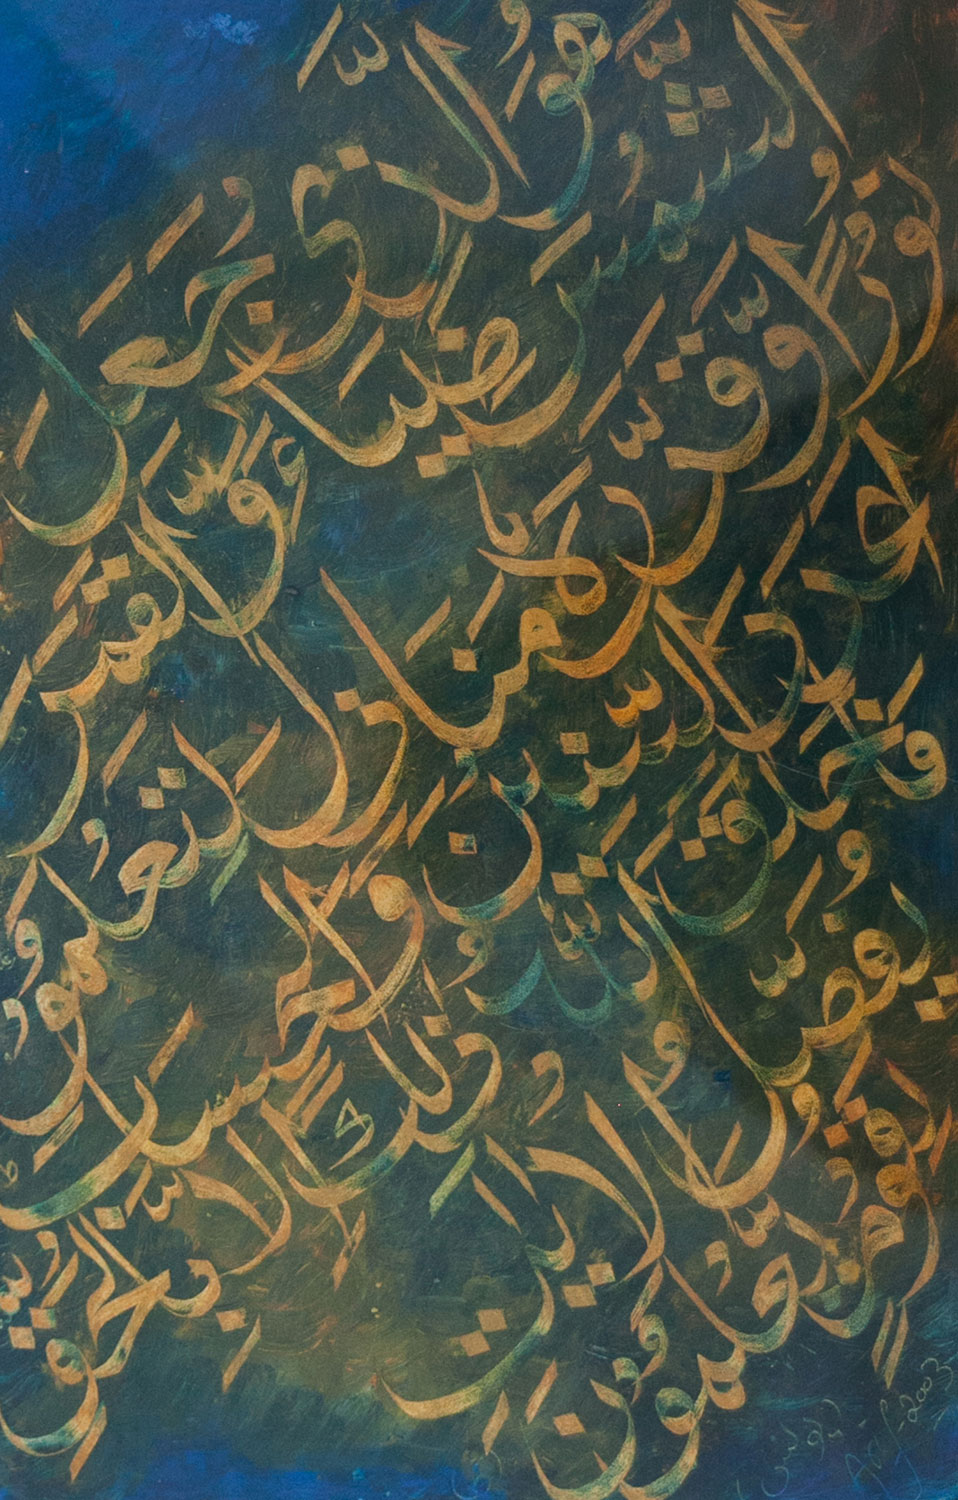 هُوَ الَّذِي جَعَلَ
الشَّمْسَ ضِيَاءً وَالْقَمَرَ
نُورًا وَقَدَّرَهُ مَنَازِلَ لِتَعْلَمُوا
عَدَدَ السِّنِينَ وَالْحِسَابَ
مَا خَلَقَ اللَّهُ ذَلِكَ إِلَّا بِالْحَقِّ
يُفَصِّلُ الْآيَاتِ
لِقَوْمٍ يَعْلَمُونَ
2003